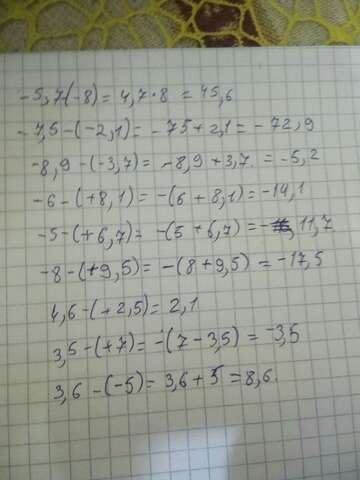 -5,7(-8) = 4,7·8 = 45,6
-7,5-(-2,1) = -75+2,1 = -72,9
-8,9-(-3,7) = -8,9+3,7 = -5,2
-6-(+8,1) = -(6+8,1) = -14,1
-5-(+6,7) = -(5+6,7) = -11,7
-8-(+9,5) = -(8+9,5) = -17,5
4,6-(+2,5) = 2,1
3,5-(+7) = -(7-3,5) = -3,5
3,6-(-5) = 3,6+5 = 8,6